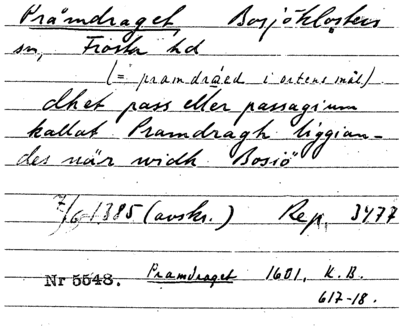 Pråmdraget, Bosjöklosters
sn, Frosta hd
(= pramdráed i ortens mål)
dhet pass eller passagium
kallat Pramdragh liggian-
des när widh Bosiö
7/6 1385 (avskr.) Rep. 3477
Nr 5548. Pramdraget 1601, K.B.
617-18.